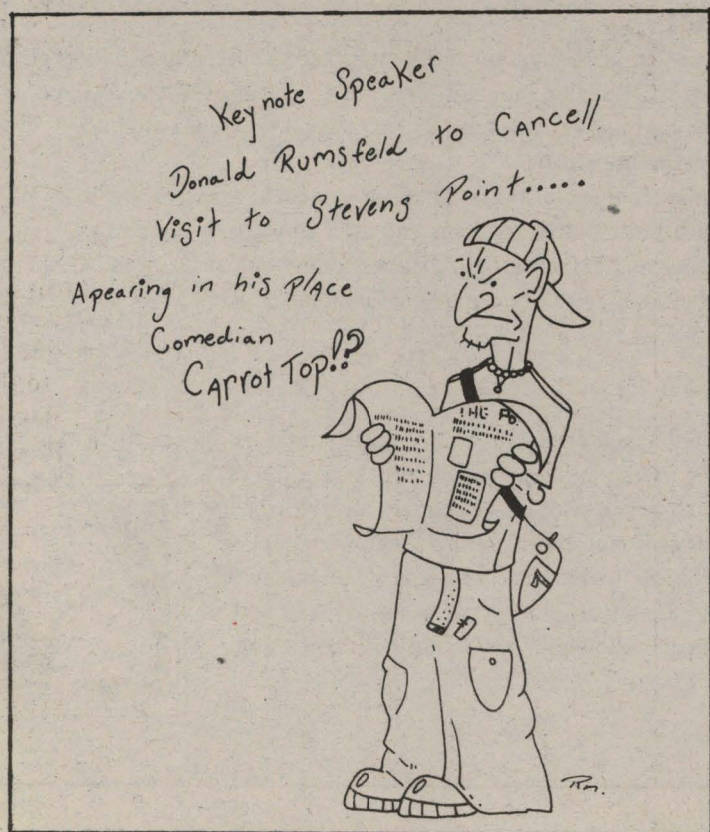 Keynote Speaker
Donald Rumsfeld to CAncell
Visit to Stevens Point.....
Apearing in his plAce
Comedian
CArrot Top!?